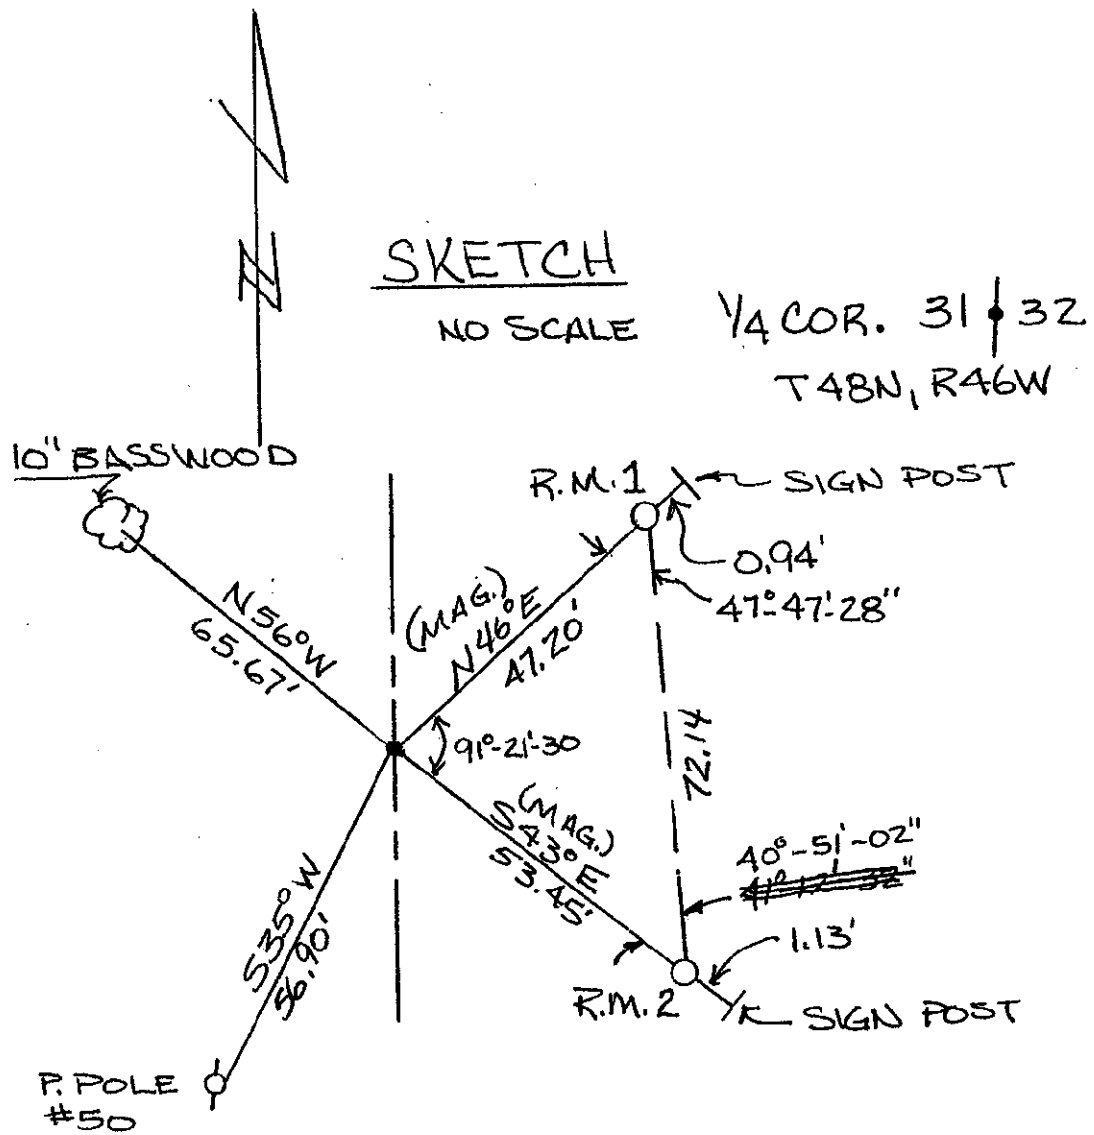 N
SKETCH
NO SCALE
1/4 COR. 31 32
T48N, R46W
10" BASSWOOD
R.M.1
SIGN POST
0.94'
47°-47'-28"
N56°W
65.67'
(MAG.)
N46°E
47.20'
91°-21'-30
72.14
(MAG.)
S43°E
53.45'
40°-51'-02"
1.13'
S35°W
56.90'
R.M.2
SIGN POST
P. POLE
#50